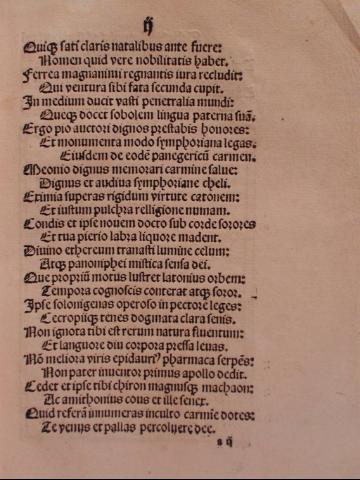 ij
Quiqꝫ sati claris natalibus ante fuere:
Nomen quid vere nobilitatis habet.
Ferrea magnanimi regnantis iura recludit:
Qui ventura sibi fata secunda cupit.
In medium ducit vasti penetralia mundi:
Queqꝫ docet sobolem lingua paterna suā.
Ergo pio auctori dignos prestabis honores:
Et monumenta modo symphoriana legas.
Eiusdem de eodē panegericū carmen.
Meonio dignus memorari carmine salue:
Dignus et audiua symphoriane cheli.
Eximia superas rigidum virtute catonem:
Et iustum pulchra relligione numam.
Condis et ipse nouem docto sub corde sorores
Et tua pierio labra liquore madent.
Diuino ethereum transati lumine celum:
Atqꝫ panomphei mistica sensa dei.
Que propriū motus lustret latonius orbem:
Tempora cognoscis conterat atqꝫ soror.
Ipse solonigenas operoso in pectore leges:
Cecropiiqꝫ tenes dogmata clara senis.
Non ignota tibi est rerum natura fluentum:
Et languore diu corpora pressa leuas.
Nō meliora viris epidauriꝰ pharmaca serpēs:
Non pater inuentor primus apollo dedit.
Cedet et ipse tibi chiron magnusqꝫ machaon:
Ac amithonius cous et ille senex.
Quid referā innumeras inculto carmīe dotes:
Te venus et pallas percoluere dee.
a ij